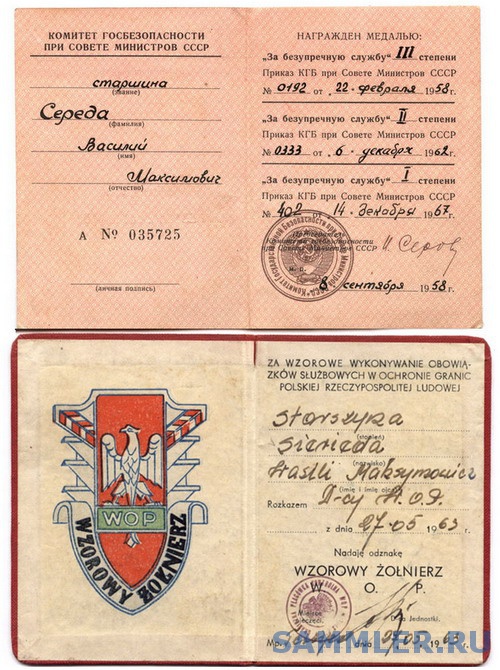 КОМИТЕТ ГОСБЕЗОПАСНОСТИ
ПРИ СОВЕТЕ МИНИСТРОВ СССР
старшина
(звание)
Середа
(фамилия)
Василий
(имя)
Максимович
(отчество)
А № 035725
(личная подпись)
НАГРАЖДЕН МЕДАЛЬЮ:
„За безупречную службу“ III степени
Приказ КГБ при Совете Министров СССР
№ 0192 от „22“ февраля 1958 г.
„За безупречную службу“ II степени
Приказ КГБ при Совете Министров СССР
№ 0333 от „6“ декабря 1962 г.
„За безупречную службу“ I степени
Приказ КГБ при Совете Министров СССР
№ 402 от 14. Декабря 1967 г.
Председатель
Комитета госбезопасности
при Совете Министров СССР
И. Серов
М. П.
8 сентября 1958 г.
WOP
WZOROWY ŻOŁNIERZ
ZA WZOROWE WYKONYWANIE OBOWIĄ-
ZKÓW SŁUŻBOWYCH W OCHRONIE GRANIC
POLSKIEJ RZECZYPOSPOLITEJ LUDOWEJ
Starszyna
(stopień)
Sierieda
(nazwisko)
Wasili Maksymowicz
(imię i imię ojca)
Rozkazem
z dnia 27.05 1963 r.
Nadaję odznakę
WZOROWY ŻOŁNIERZ
W. O. P.
Miejsce
pieczęci
Jednostki
Mp. 1963 r.
SAMMLER.RU